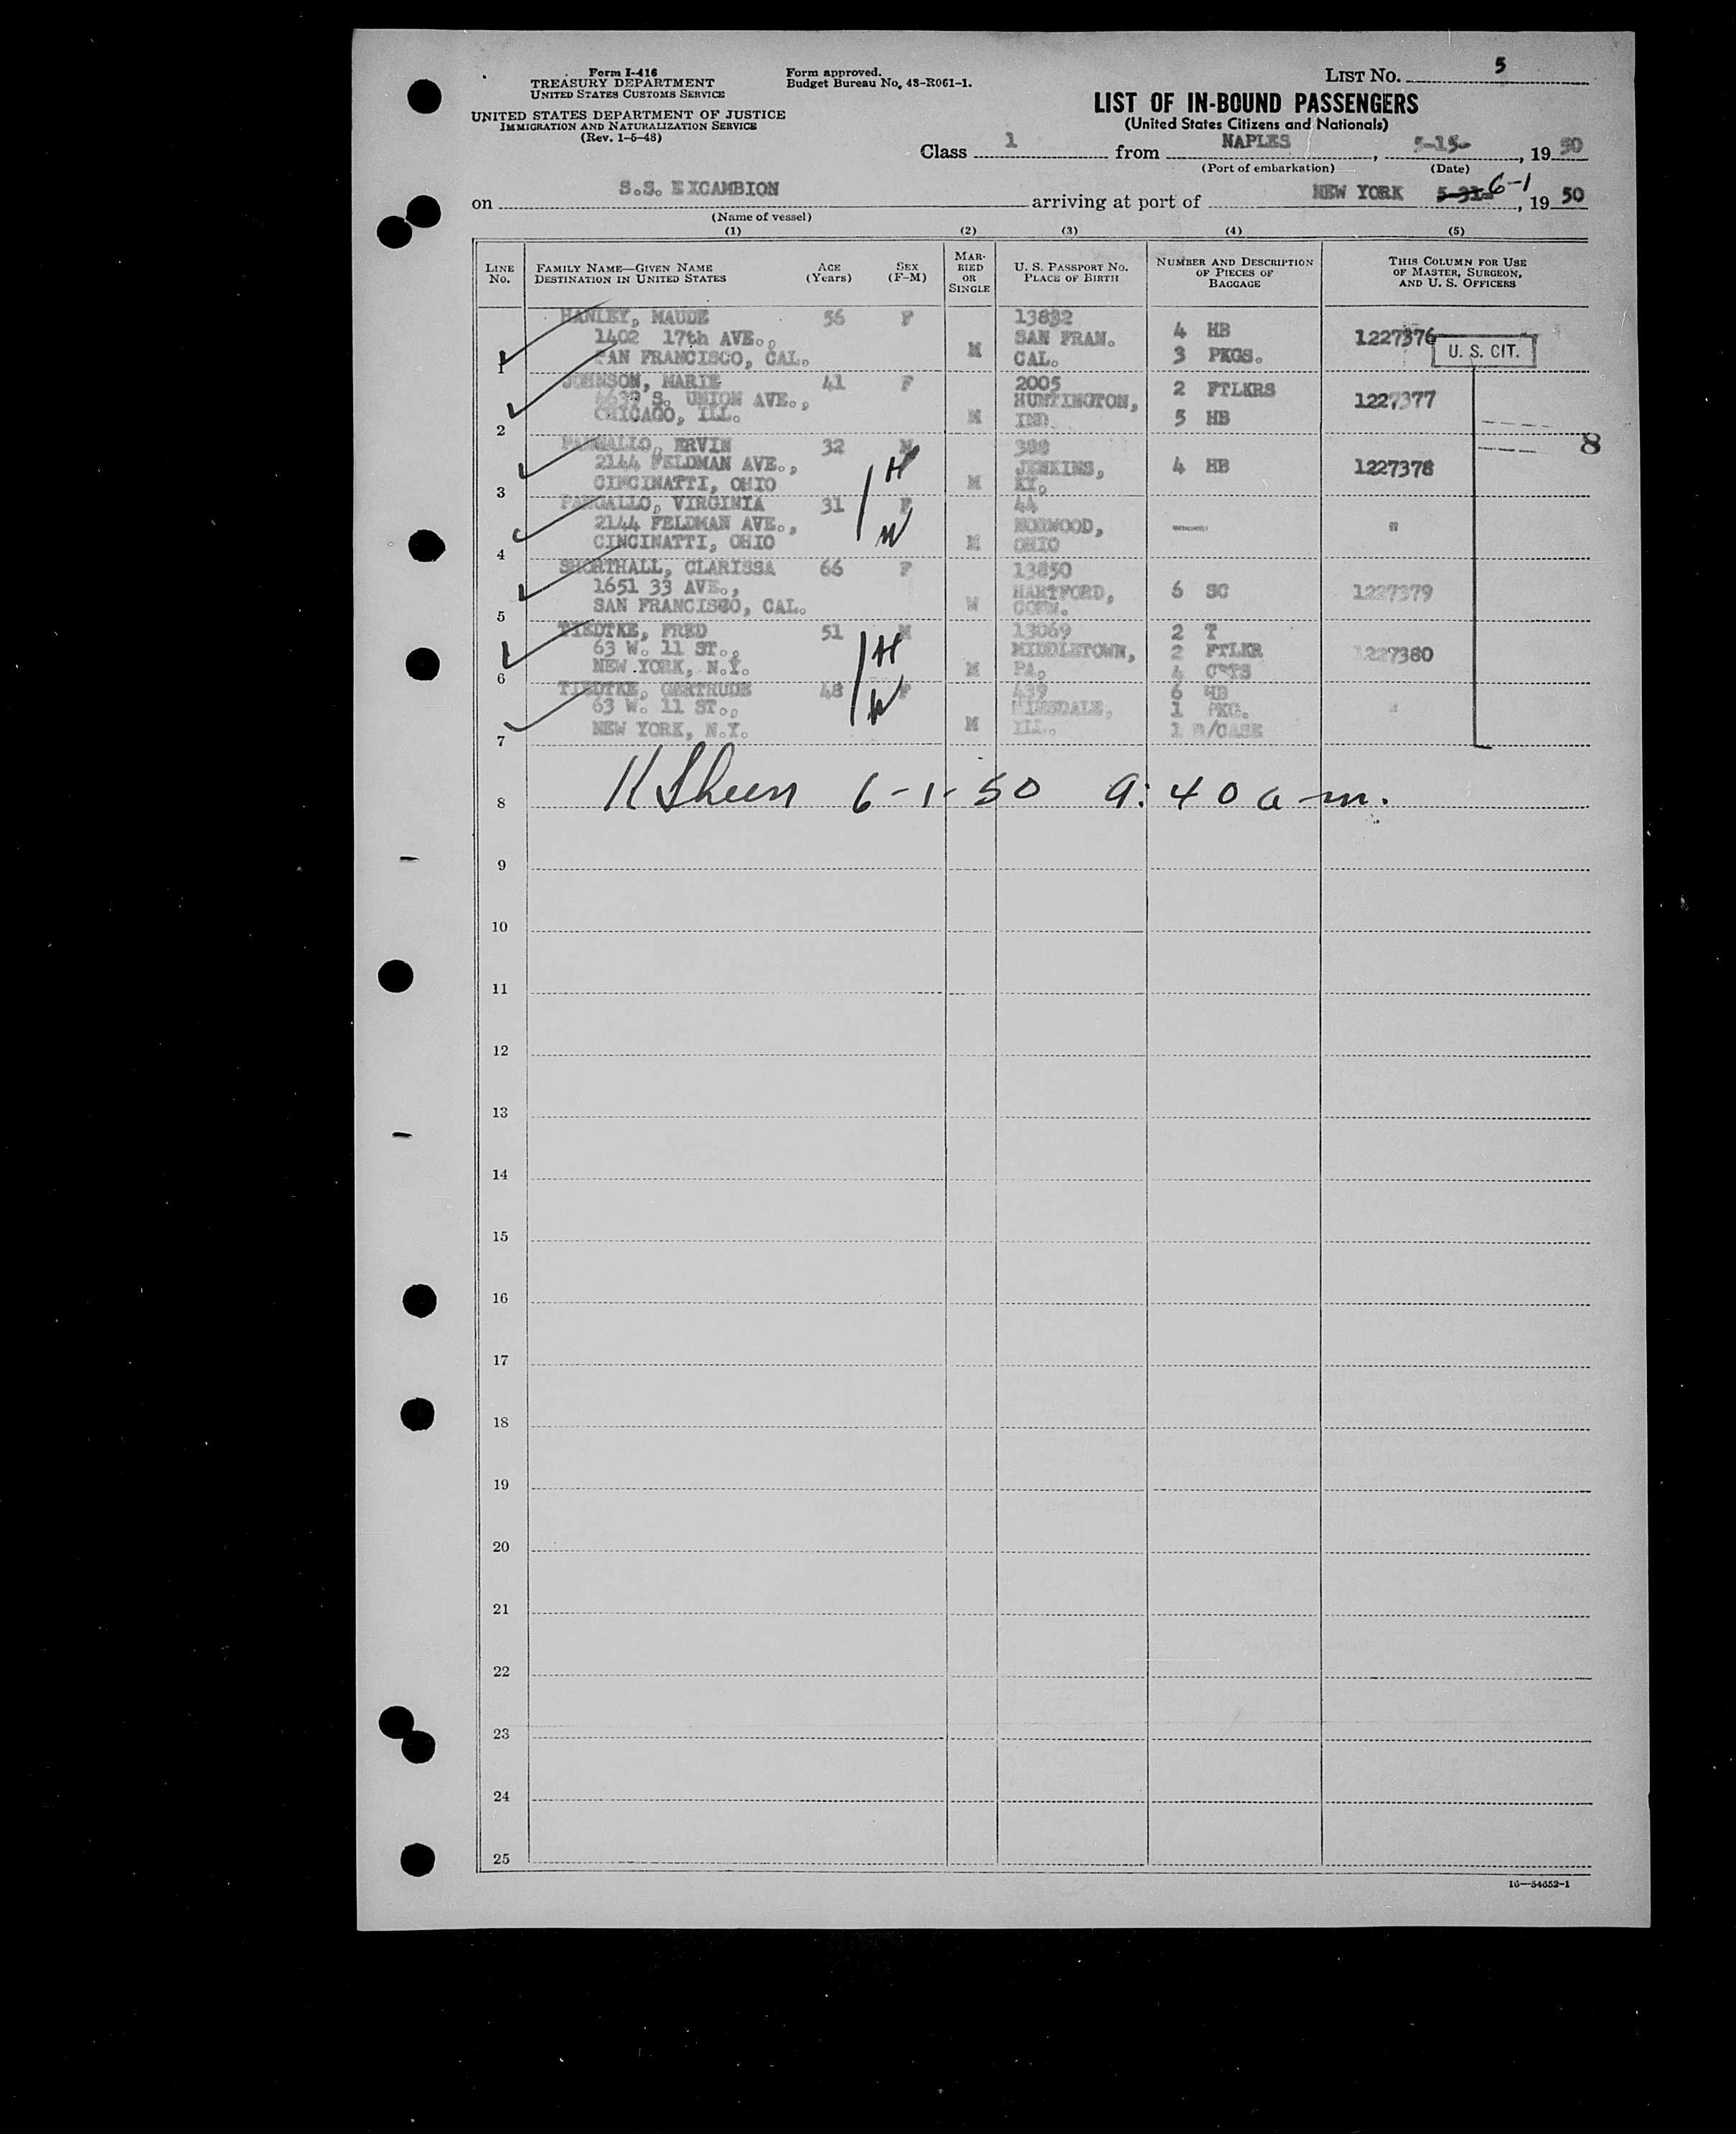 Form I-416
TREASURY DEPARTMENT
UNITED STATES CUSTOMS SERVICE
UNITED STATES DEPARTMENT OF JUSTICE
IMMIGRATION AND NATURALIZATION SERVICE
(Rev. 1-5-48)
Form approved.
Budget Bureau No. 43-R061-1.
LIST NO. 5
LIST OF IN-BOUND PASSENGERS
(United States Citizens and Nationals)
Class 1 from NAPLES, 5-15-, 1950
(Port of embarkation) (Date)
on S.S. EXCAMBION arriving at port of NEW YORK 5-31- 6-1, 1950
(Name of vessel)
(1) (2) (3) (4) (5)
LINE NO. FAMILY NAME—GIVEN NAME DESTINATION IN UNITED STATES AGE (Years) SEX (F-M) MARRIED OR SINGLE U. S. PASSPORT NO. PLACE OF BIRTH NUMBER AND DESCRIPTION OF PIECES OF BAGGAGE THIS COLUMN FOR USE OF MASTER, SURGEON, AND U. S. OFFICERS
HANLEY, MAUDE 56 F 13832
1402 17th AVE., SAN FRAN. 4 HB 1227376
1 SAN FRANCISCO, CAL. M CAL. 3 PKGS. U. S. CIT.
JOHNSON, MARIE 41 F 2005 2 FTLKRS
S. UNION AVE., HUNTINGTON, 1227377
2 CHICAGO, ILL. M IND. 5 HB
ERVIN 32 M 388 8
2144 FELDMAN AVE., H JENKINS, 4 HB 1227378
3 CINCINATTI, OHIO M KY.
VIRGINIA 31 F 44
2144 FELDMAN AVE., W NORWOOD, ---- "
4 CINCINATTI, OHIO M OHIO
SHORTHALL, CLARISSA 66 F 13850
1651 33 AVE., HARTFORD, 6 SC 1227379
5 SAN FRANCISCO, CAL. W CONN.
TIEDTKE, FRED 51 M 13069 2 T
63 W. 11 ST., H MIDDLETOWN, 2 FTLKR 1227380
6 NEW YORK, N.Y. M PA. 4
TIEDTKE, GERTRUDE 48 F 439 6 HB
63 W. 11 ST., W HINSDALE, 1 PKG. "
7 NEW YORK, N.Y. M ILL. 1 /CASE
8 6-1-50 9:40 a m.
9
10
11
12
13
14
15
16
17
18
19
20
21
22
23
24
25
16—54652-1